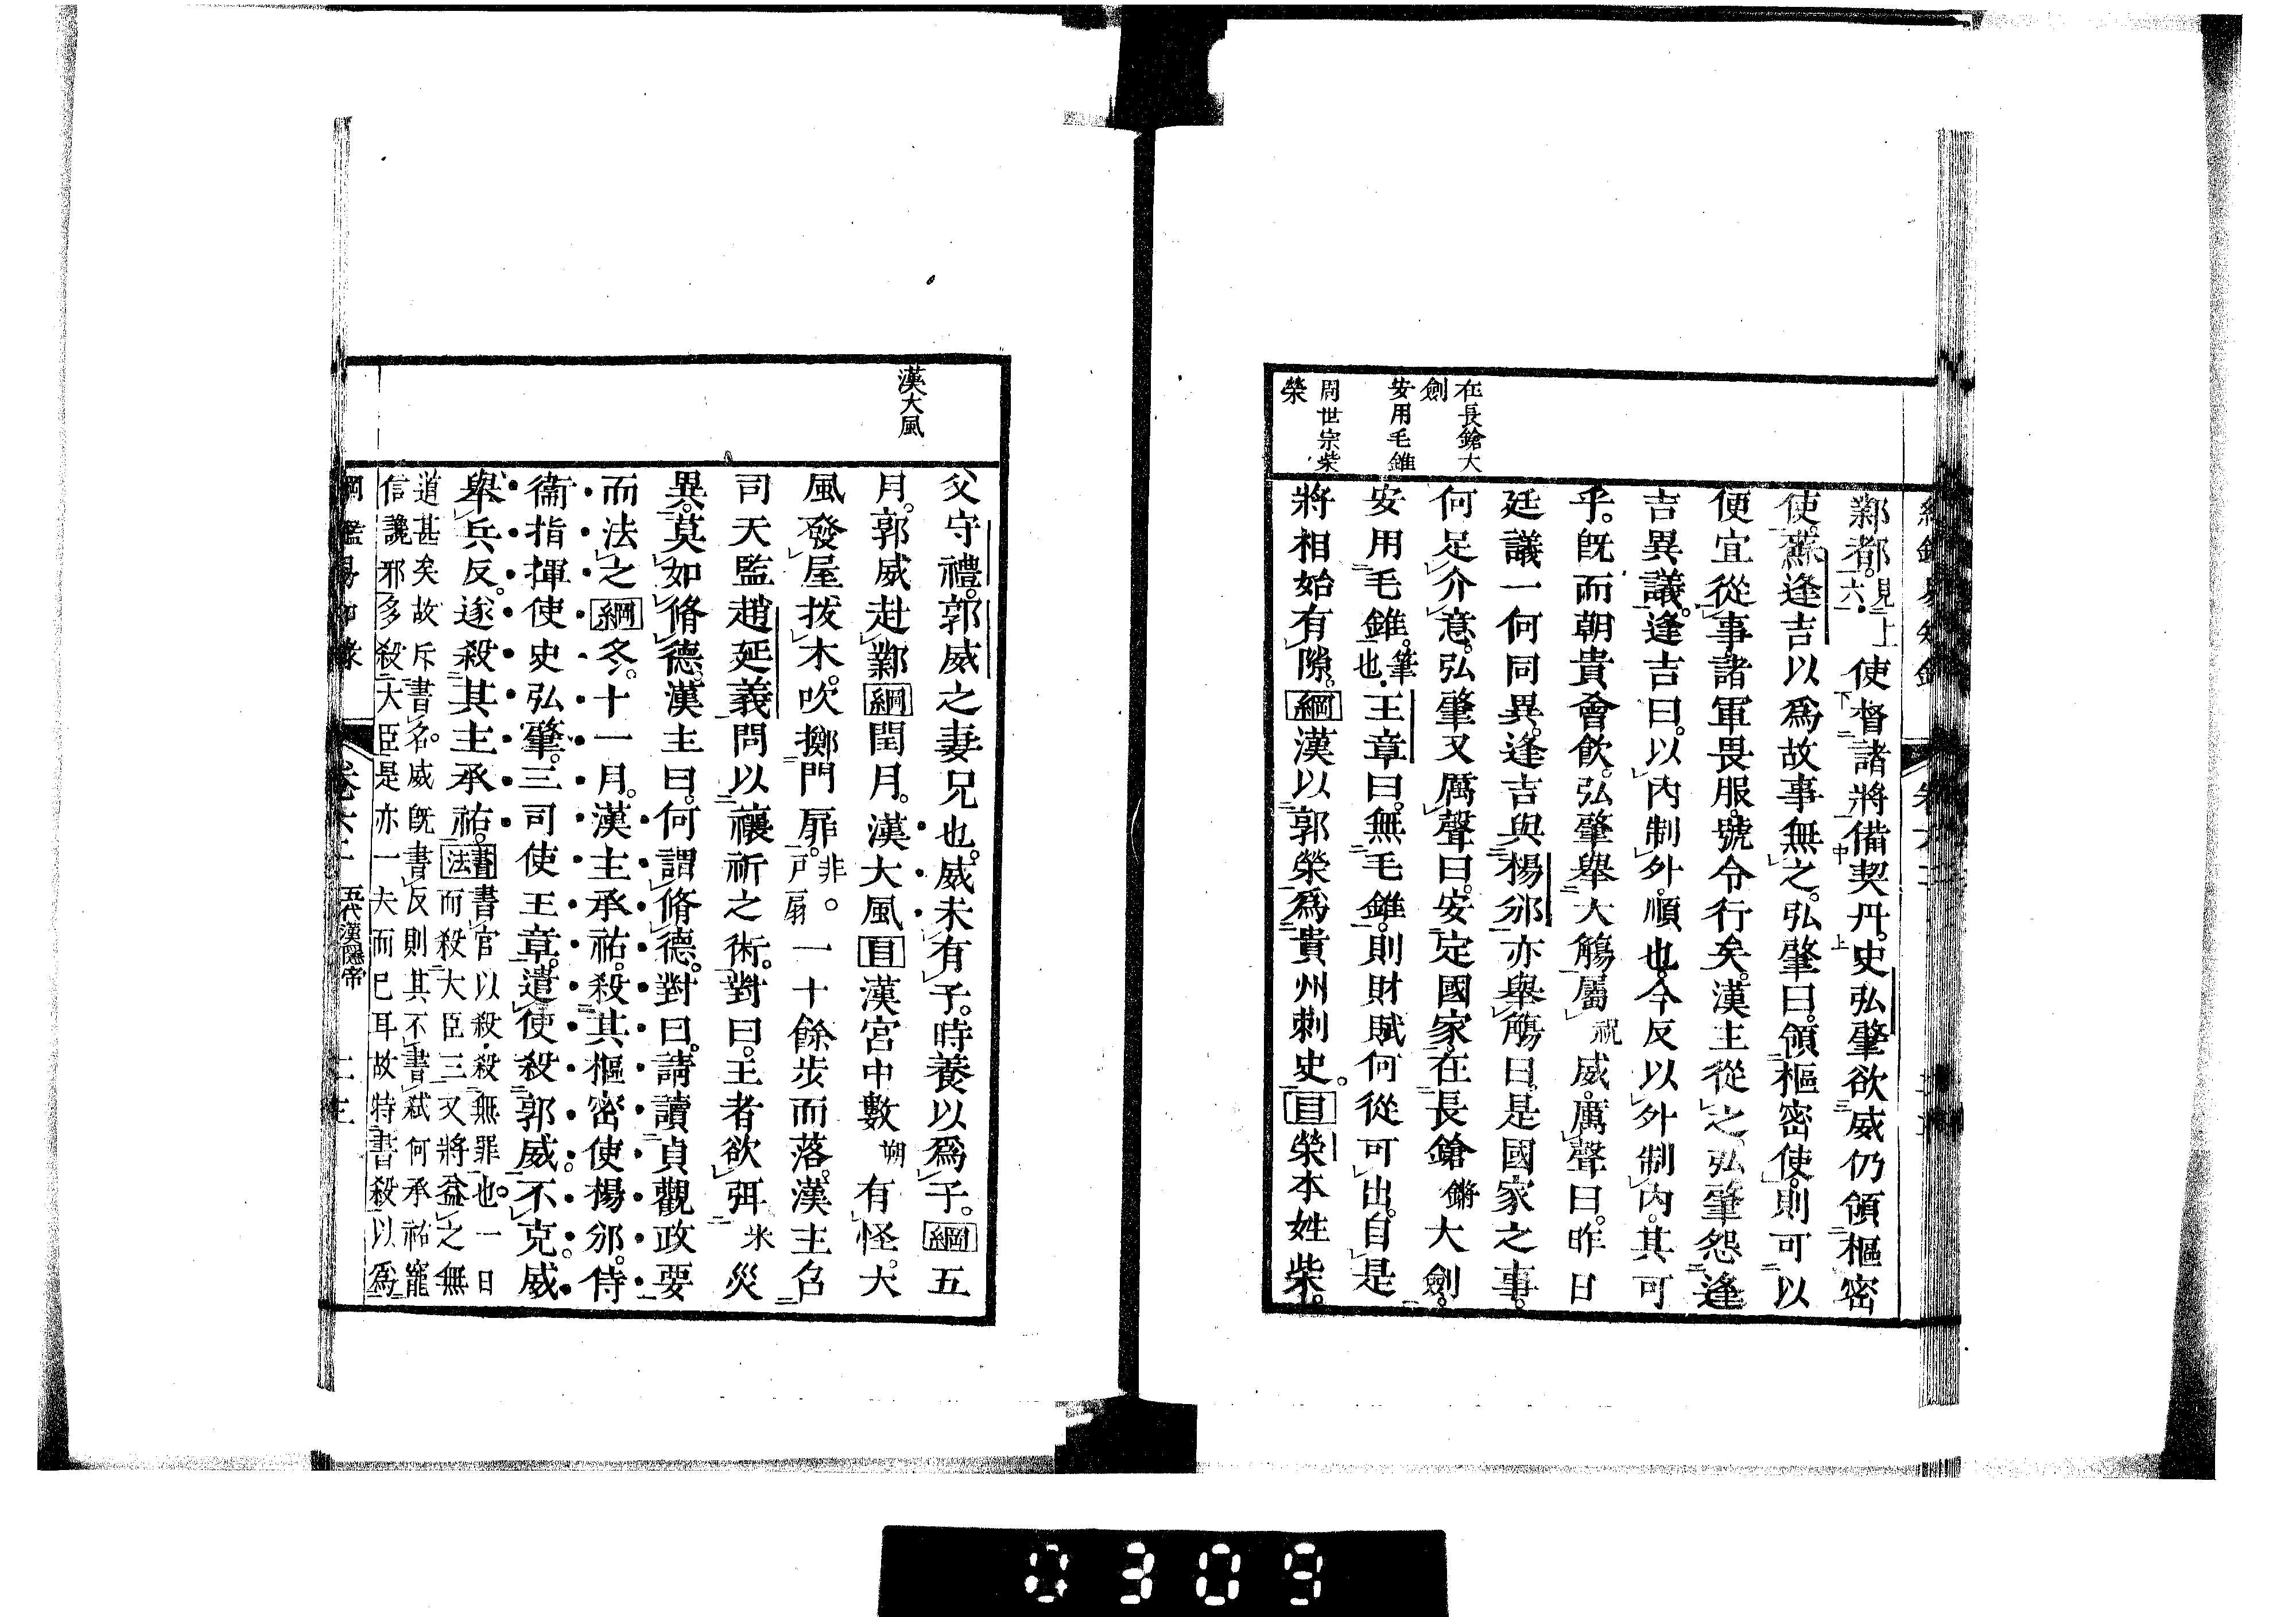 在長鎗大
劍
安用毛錐
周世宗柴
榮
鄴都。見上六。使督諸將備契丹。史弘肇欲威仍領樞密
使。蘇逢吉以爲故事無之。弘肇曰。領樞密使。則可以
便宜從事。諸軍畏服。號令行矣。漢主從之。弘肇怨逢
吉異議。逢吉曰。以內制外。順也。今反以外制內。其可
乎。旣而朝貴會飲。弘肇舉大觴屬祝威。厲聲曰。昨日
廷議一何同異。逢吉與楊邠亦舉觴曰。是國家之事。
何足介意。弘肇又厲聲曰。安定國家。在長鎗鏘大劍。
安用毛錐。筆也。王章曰。無毛錐。則財賦何從可出。自是
將相始有隙。綱漢以郭榮爲貴州刺史。目榮本姓柴。
漢大風
父守禮。郭威之妻兄也。威未有子。時養以爲子。綱五
月。郭威赴鄴綱閏月。漢大風目漢宮中數朔有怪。大
風發屋拔木。吹擲門扉。非。戶扇一十餘步而落。漢主召
司天監趙延義。問以禳祈之術。對曰。王者欲弭米災
異。莫如脩德。漢主曰。何謂脩德。對曰。請讀貞觀政要
而法之綱冬。十一月。漢主承祐。殺其樞密使楊邠。侍
衞指揮使史弘肇。三司使王章。遣使殺郭威。不克。威
舉兵反。遂殺其主承祐。書法書官以殺。殺無罪也。一日
而殺大臣三。又將益之無
道甚矣故斥書名。威旣書反則其不書弑何承祐寵
信讒邪多殺大臣是亦一夫而已耳故特書殺以爲
五代漢隱帝
0309